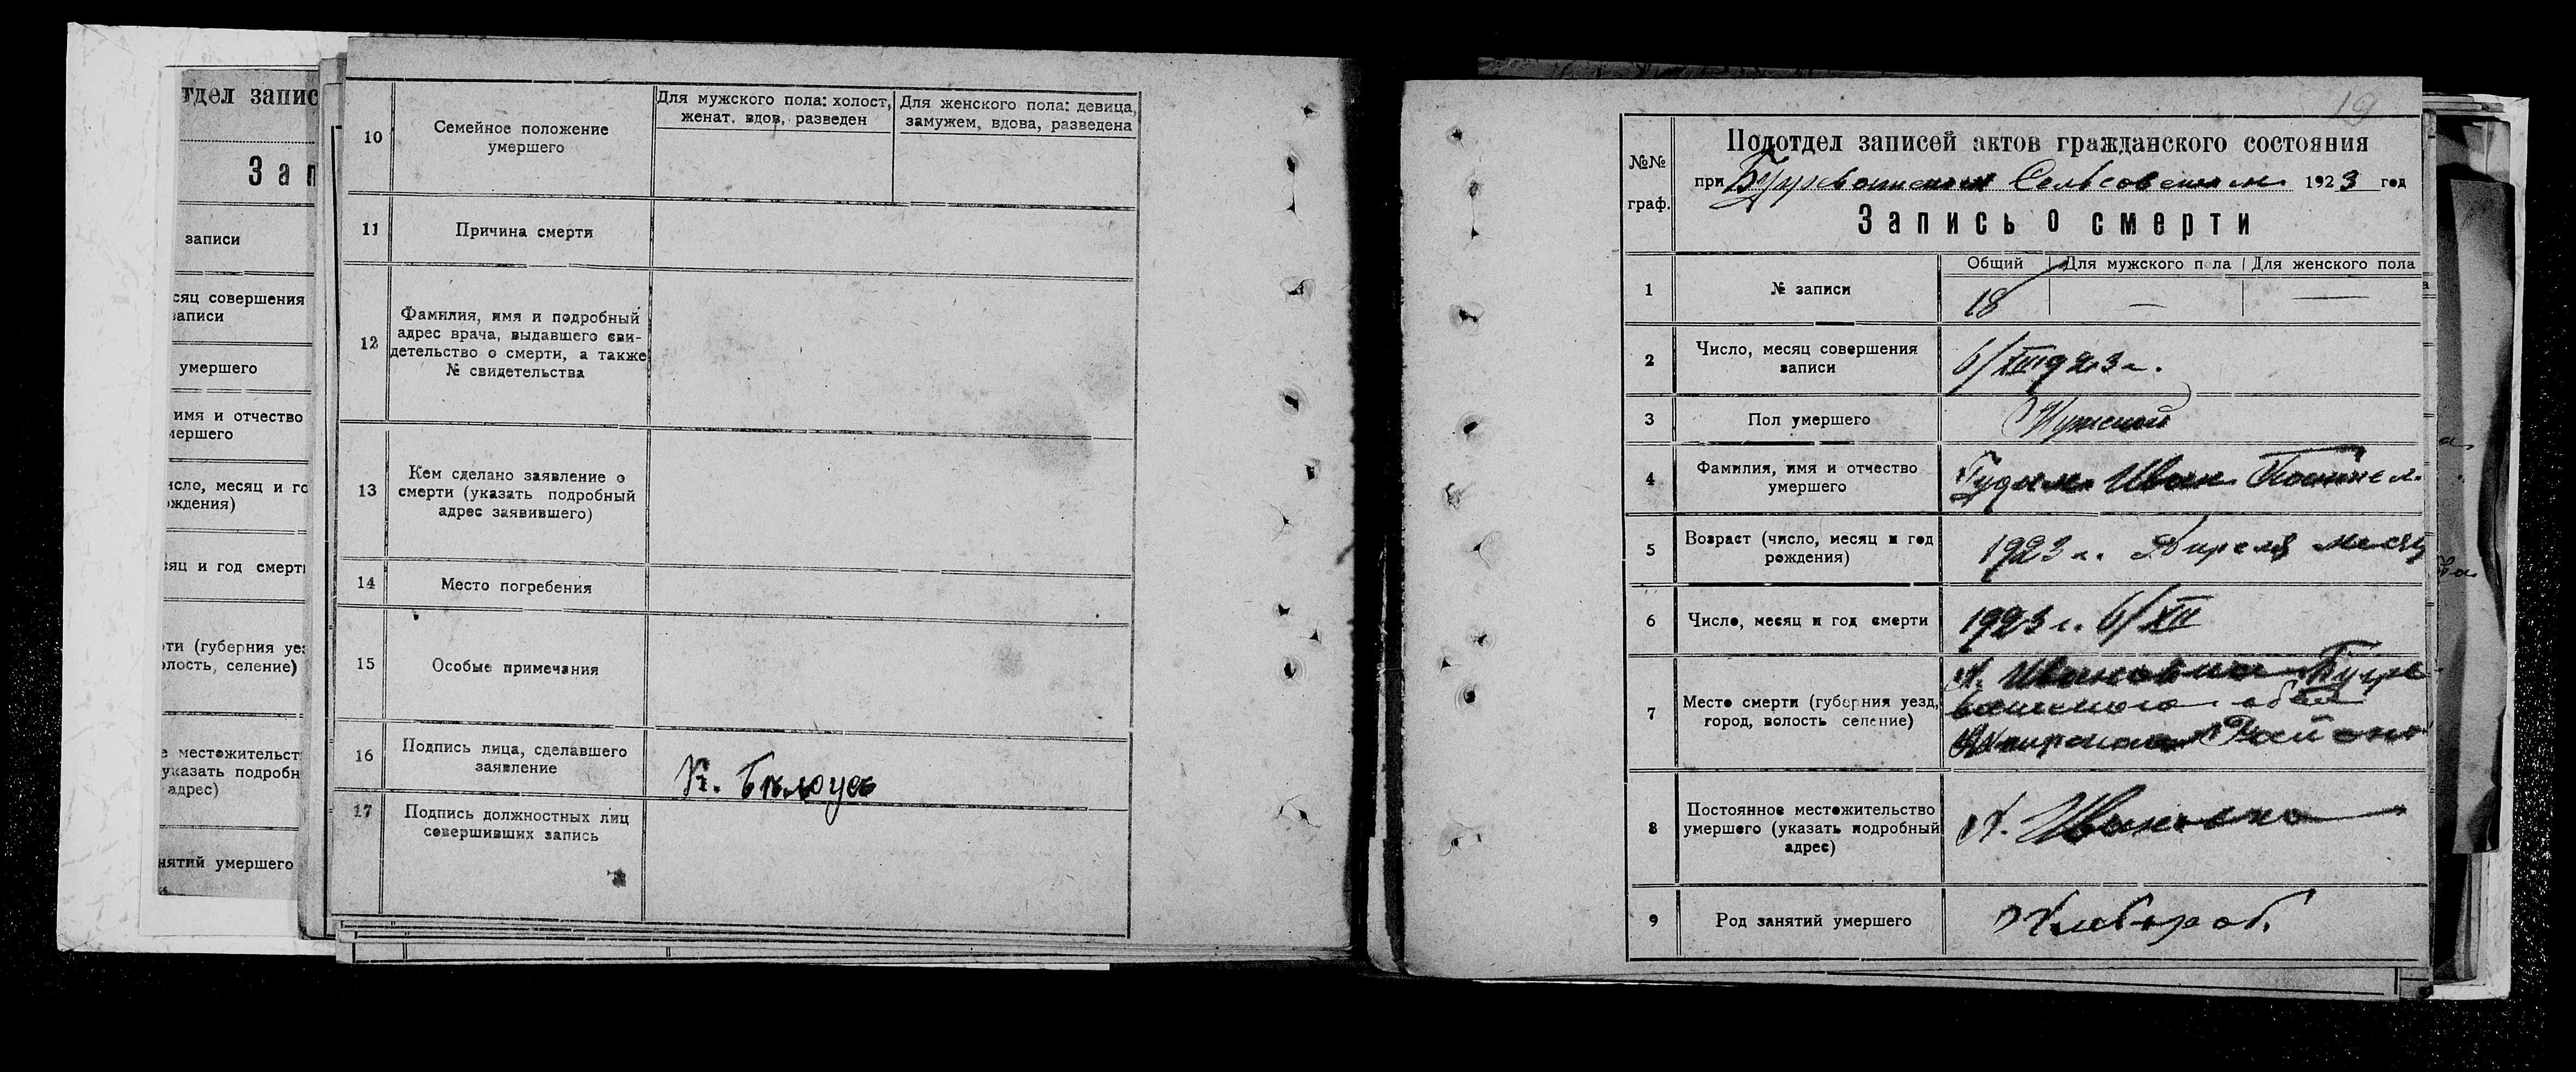 тдел запис
Зап
записи
сяц совершения
записи
умершего
имя и отчество
мершего
исло, месяц и го
ождения)
сяц и год смерти
рти (губерния уез
олость, селение)
е местожительст
указать подробн
адрес)
нятий умершего
10
Семейное положение
умершего
Для мужского пола: холост,
женат, вдов, разведен
Для женского пола: девица,
замужем, вдова, разведена
11
Причина смерти
12
Фамилия, имя и подробный
адрес врача, выдавшего сви-
детельство о смерти, а также
№ свидетельства
13
Кем сделано заявление о
смерти (указать подробный
адрес заявившего)
14
Место погребения
15
Особые примечания
16
Подпись лица, сделавшего
заявление
К. Бѣлоусъ
17
Подпись должностных лиц
совершивших запись
19
№№
граф.
Подотдел записей актов гражданского состояния
при Сельсоветом 1923 год
Запись о смерти
1
№ записи
Общий
Для мужского пола
Для женского пола
18
—
—
2
Число, месяц совершения
записи
6/XII 1923 г.
3
Пол умершего
Мужской
4
Фамилия, имя и отчество
умершего
Гудым Иван
5
Возраст (число, месяц и год
рождения)
1923 г. Апреля месяц
6
Число, месяц и год смерти
1923 г. 6/XII
7
Место смерти (губерния уезд,
город, волость селение)
х. Ивановка
Района
8
Постоянное местожительство
умершего (указать подробный
адрес)
х. Ивановка
9
Род занятий умершего
Хлебороб.